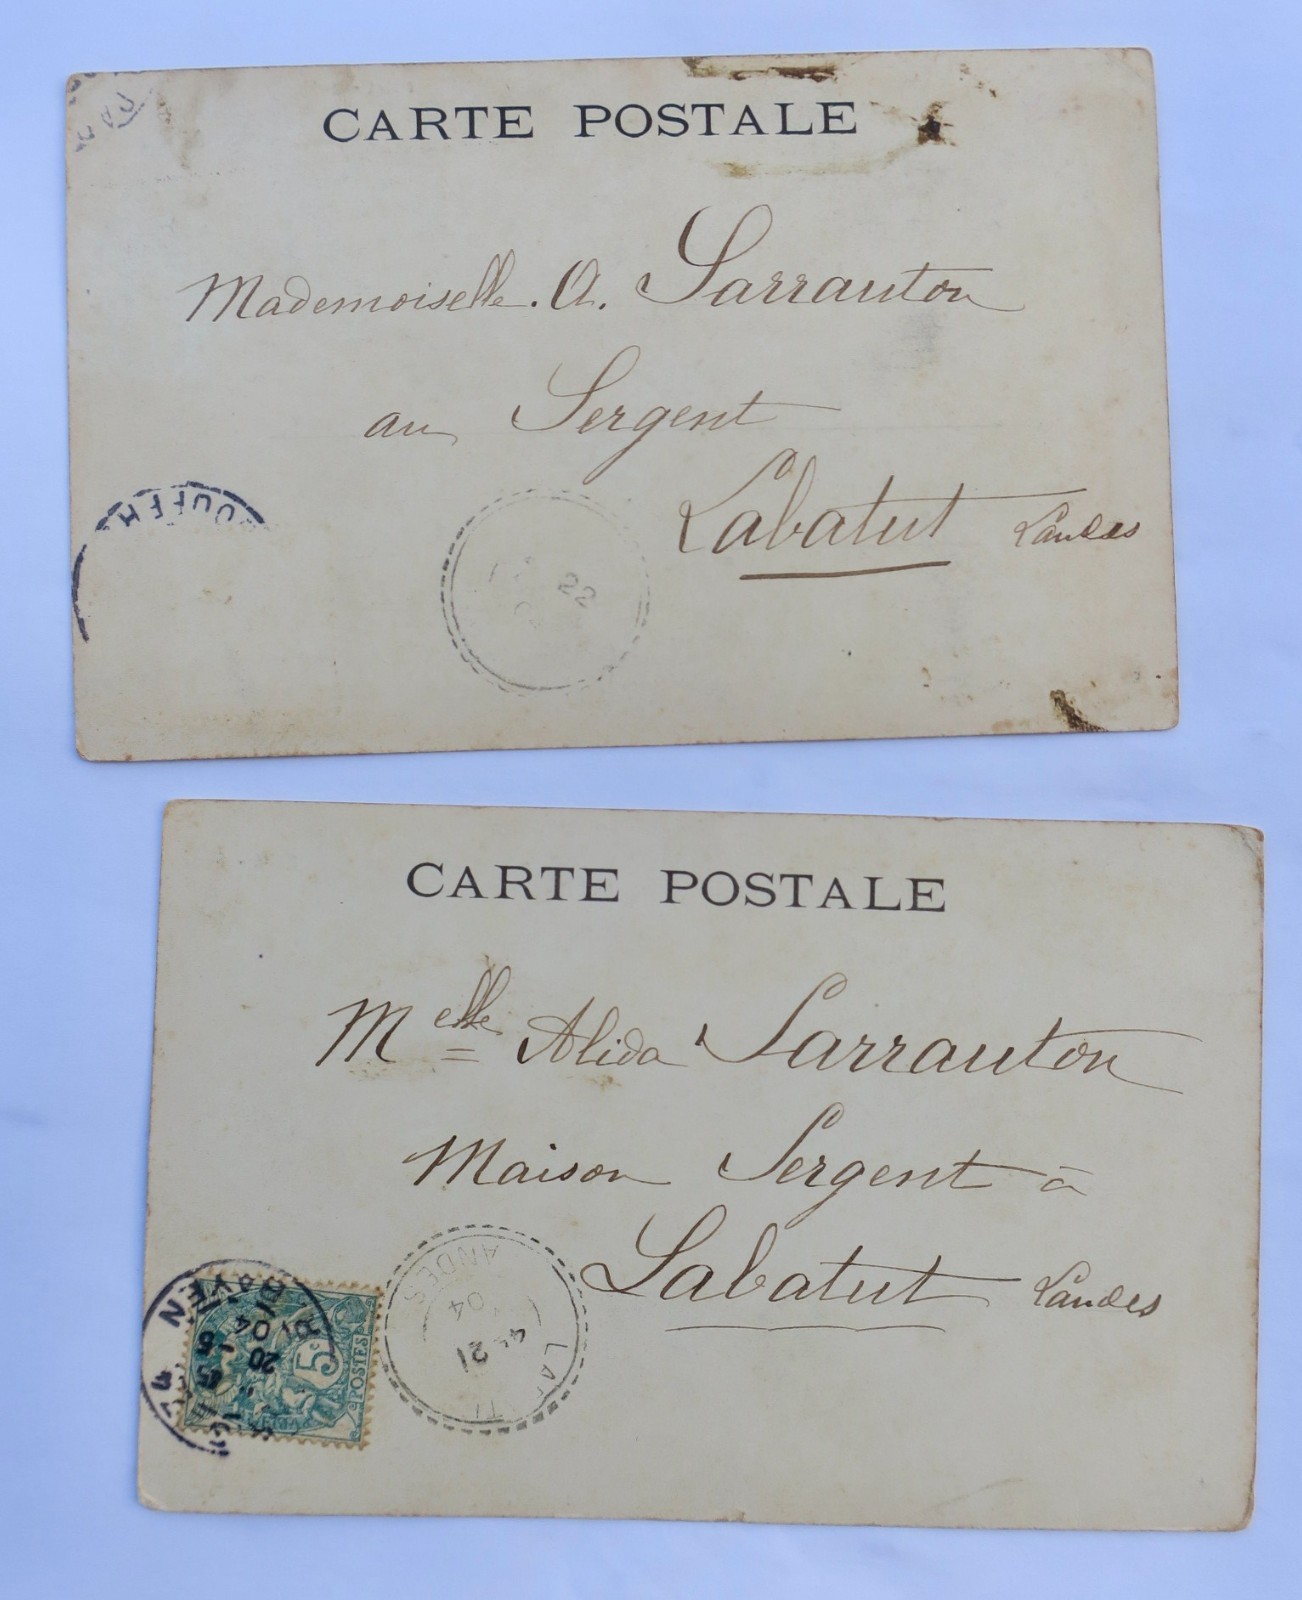 CARTE POSTALE
Mademoiselle. A. Sarrauton
au Sergent
Labatut Landes
22
CARTE POSTALE
Melle Alida Sarrauton
Maison Sergent à
Labatut Landes
ANDES
04
21
20
04
5c
POSTES